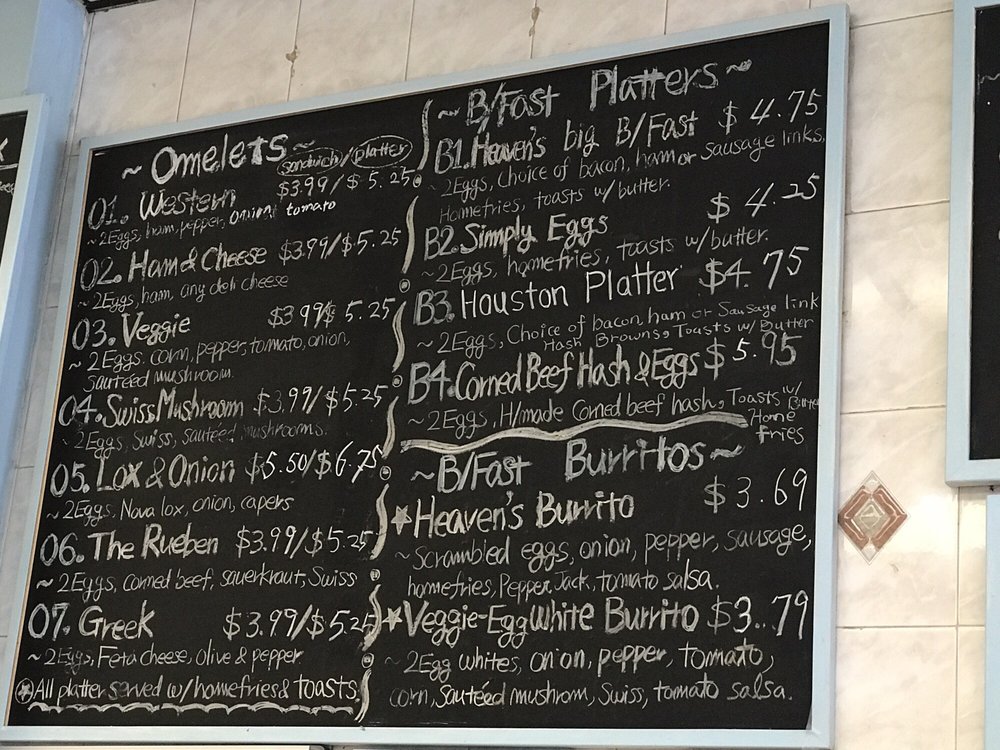 ~ Omelets ~
sandwich/platter
01. Western $3.99/$5.25
~ 2Eggs, ham, pepper, onion, tomato
02. Ham & Cheese $3.99/$5.25
~ 2Eggs, ham, any deli cheese
03. Veggie $3.99/$5.25
~ 2 Eggs. corn, pepper, tomato, onion,
sautéed mushroom.
04. Swiss Mushroom $3.99/$5.25
~ 2Eggs, Swiss, sautéed mushrooms.
05. Lox & Onion $5.50/$6.75
~ 2Eggs, Nova lox, onion, capers
06. The Rueben $3.99/$5.25
~ 2Eggs, corned beef, sauerkraut, Swiss
07. Greek $3.99/$5.25
~ 2Eggs, Feta cheese, olive & pepper
All platter served w/homefries & toasts.
~ B/Fast Platters ~
B1. Heaven's big B/Fast $4.75
~ 2Eggs, Choice of bacon, ham or Sausage links,
Homefries, toasts w/butter.
B2. Simply Eggs $4.25
~ 2Eggs, homefries, toasts w/butter.
B3. Hauston Platter $4.75
~ 2Eggs, Choice of bacon, ham or Sausage link
Hash Browns, Toasts w/ Butter
B4. Corned Beef Hash & Eggs $5.95
~ 2Eggs, H/made Corned beef hash, Toasts w/ Butter
Home
fries
~ B/Fast Burritos ~
Heaven's Burrito $3.69
~ Scrambled eggs, onion, pepper, sausage,
homefries, Pepper Jack, tomato salsa.
Veggie-Egg White Burrito $3.79
~ 2Egg whites, onion, pepper, tomato,
corn, Sautéed mushrom, Swiss, tomato salsa.